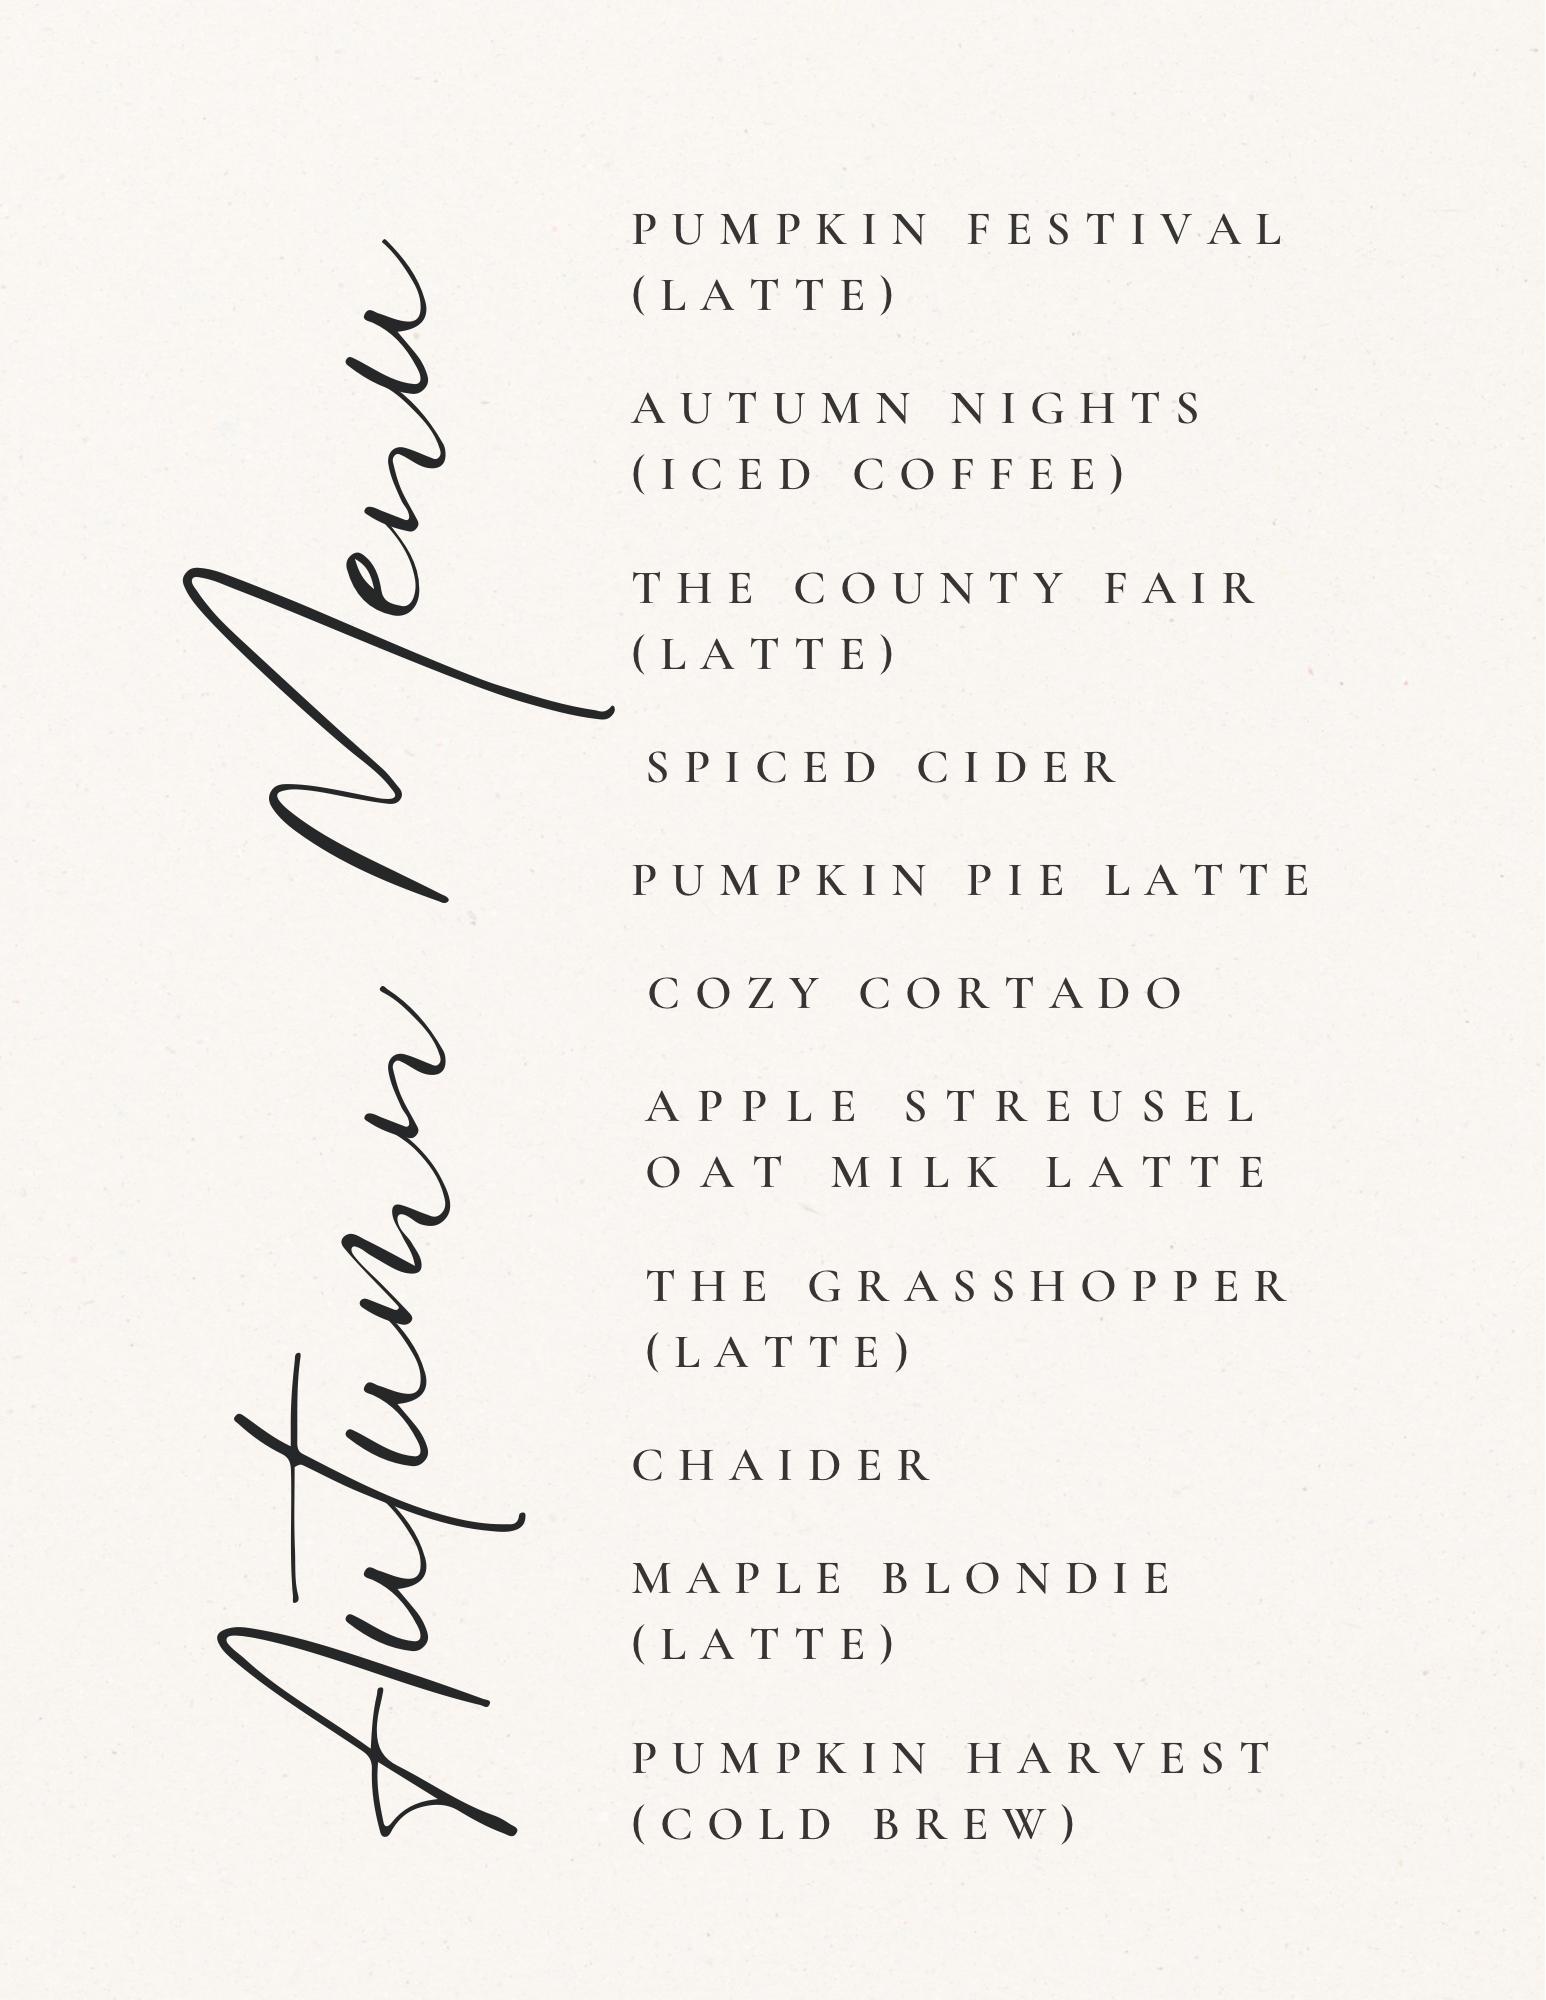 Autumn Menu
PUMPKIN FESTIVAL
(LATTE)
AUTUMN NIGHTS
(ICED COFFEE)
THE COUNTY FAIR
(LATTE)
SPICED CIDER
PUMPKIN PIE LATTE
COZY CORTADO
APPLE STREUSEL
OAT MILK LATTE
THE GRASSHOPPER
(LATTE)
CHAIDER
MAPLE BLONDIE
(LATTE)
PUMPKIN HARVEST
(COLD BREW)